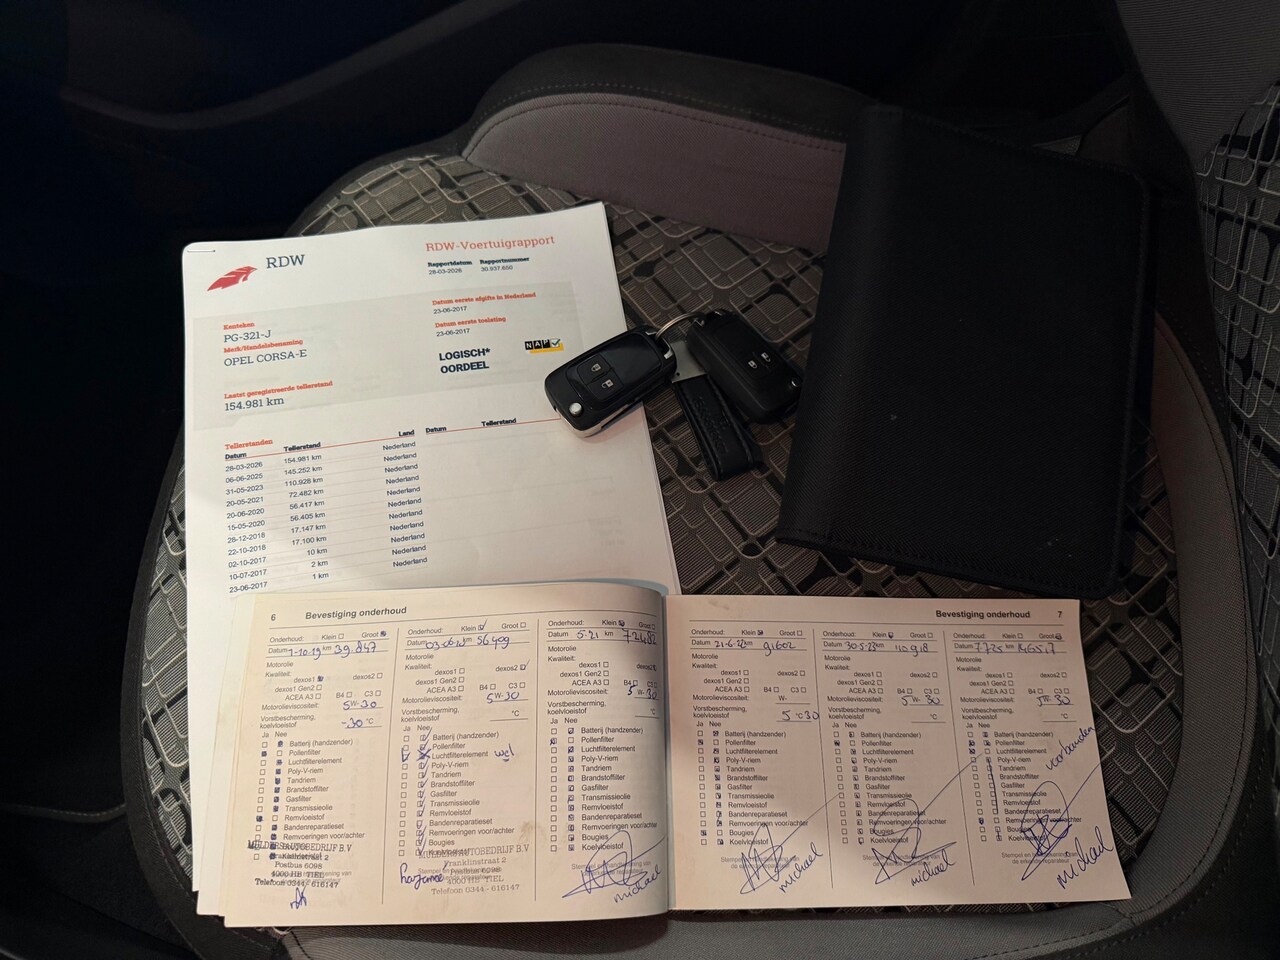 RDW
RDW-Voertuigrapport
Rapportdatum Rapportnummer
28-03-2026 30.937.650
Kenteken
PG-321-J
Merk/Handelsbenaming
OPEL CORSA-E
Datum eerste afgifte in Nederland
23-06-2017
Datum eerste toelating
23-06-2017
LOGISCH*
OORDEEL
NAP
Laatst geregistreerde tellerstand
154.981 km
Tellerstanden
Datum Tellerstand Land Datum Tellerstand
28-03-2026 154.981 km Nederland
06-06-2025 145.252 km Nederland
31-05-2023 110.928 km Nederland
20-05-2021 72.482 km Nederland
20-06-2020 56.417 km Nederland
15-05-2020 56.405 km Nederland
28-12-2018 17.147 km Nederland
22-10-2018 17.100 km Nederland
02-10-2017 10 km Nederland
10-07-2017 2 km Nederland
23-06-2017 1 km
6 Bevestiging onderhoud
Onderhoud: Klein Groot
Datum 1-10-19 km 39.847
Motorolie
Kwaliteit:
dexos1 dexos2
dexos1 Gen2
ACEA A3 B4 C3
Motorolieviscositeit: 5W-30
Vorstbescherming,
koelvloeistof -30 °C
Ja Nee
Batterij (handzender)
Pollenfilter
Luchtfilterelement
Poly-V-riem
Tandriem
Brandstoffilter
Gasfilter
Transmissieolie
Remvloeistof
Bandenreparatieset
Remvoeringen voor/achter
Koelvloeistof
MULDERS AUTOBEDRIJF B.V
Franklinstraat 2
Postbus 6098
4000 HB TIEL
Telefoon 0344 - 616147
Onderhoud: Klein Groot
Datum km 56409
Motorolie
Kwaliteit:
dexos1 dexos2
dexos1 Gen2
ACEA A3 B4 C3
Motorolieviscositeit: 5W-30
Vorstbescherming,
koelvloeistof °C
Ja Nee
Batterij (handzender)
Pollenfilter
Luchtfilterelement wel
Poly-V-riem
Tandriem
Brandstoffilter
Gasfilter
Transmissieolie
Remvloeistof
Bandenreparatieset
Remvoeringen voor/achter
Bougies
MULDERS AUTOBEDRIJF B.V
Franklinstraat 2
Postbus 6098
4000 HB TIEL
Telefoon 0344 - 616147
Onderhoud: Klein Groot
Datum 5-21 km 72482
Motorolie
Kwaliteit:
dexos1 dexos2
dexos1 Gen2
ACEA A3 B4 C3
Motorolieviscositeit: 5W-30
Vorstbescherming,
koelvloeistof °C
Ja Nee
Batterij (handzender)
Pollenfilter
Luchtfilterelement
Poly-V-riem
Tandriem
Brandstoffilter
Gasfilter
Transmissieolie
Remvloeistof
Bandenreparatieset
Remvoeringen voor/achter
Bougies
Koelvloeistof
michael
Bevestiging onderhoud 7
Onderhoud: Klein Groot
Datum 21-6-22 km 91602
Motorolie
Kwaliteit:
dexos1 dexos2
dexos1 Gen2
ACEA A3 B4 C3
Motorolieviscositeit: W-
Vorstbescherming,
koelvloeistof 5 °C 30
Ja Nee
Batterij (handzender)
Pollenfilter
Luchtfilterelement
Poly-V-riem
Tandriem
Brandstoffilter
Gasfilter
Transmissieolie
Remvloeistof
Bandenreparatieset
Remvoeringen voor/achter
Bougies
Koelvloeistof
michael
Onderhoud: Klein Groot
Datum 30-5-23 km 110918
Motorolie
Kwaliteit:
dexos1 dexos2
dexos1 Gen2
ACEA A3 B4 C3
Motorolieviscositeit: 5W-30
Vorstbescherming,
koelvloeistof °C
Ja Nee
Batterij (handzender)
Pollenfilter
Luchtfilterelement
Poly-V-riem
Tandriem
Brandstoffilter
Gasfilter
Transmissieolie
Remvloeistof
Bandenreparatieset
Remvoeringen voor/achter
Bougies
Koelvloeistof
michael
Onderhoud: Klein Groot
Datum km
Motorolie
Kwaliteit:
dexos1 dexos2
dexos1 Gen2
ACEA A3 B4 C3
Motorolieviscositeit: 5W-30
Vorstbescherming,
koelvloeistof °C
Ja Nee
Batterij (handzender)
Pollenfilter
Luchtfilterelement
Poly-V-riem
Tandriem
Brandstoffilter
Gasfilter
Transmissieolie
Remvloeistof
Bandenreparatieset
Remvoeringen voor/achter
Bougies
Koelvloeistof
voorbanden
michael